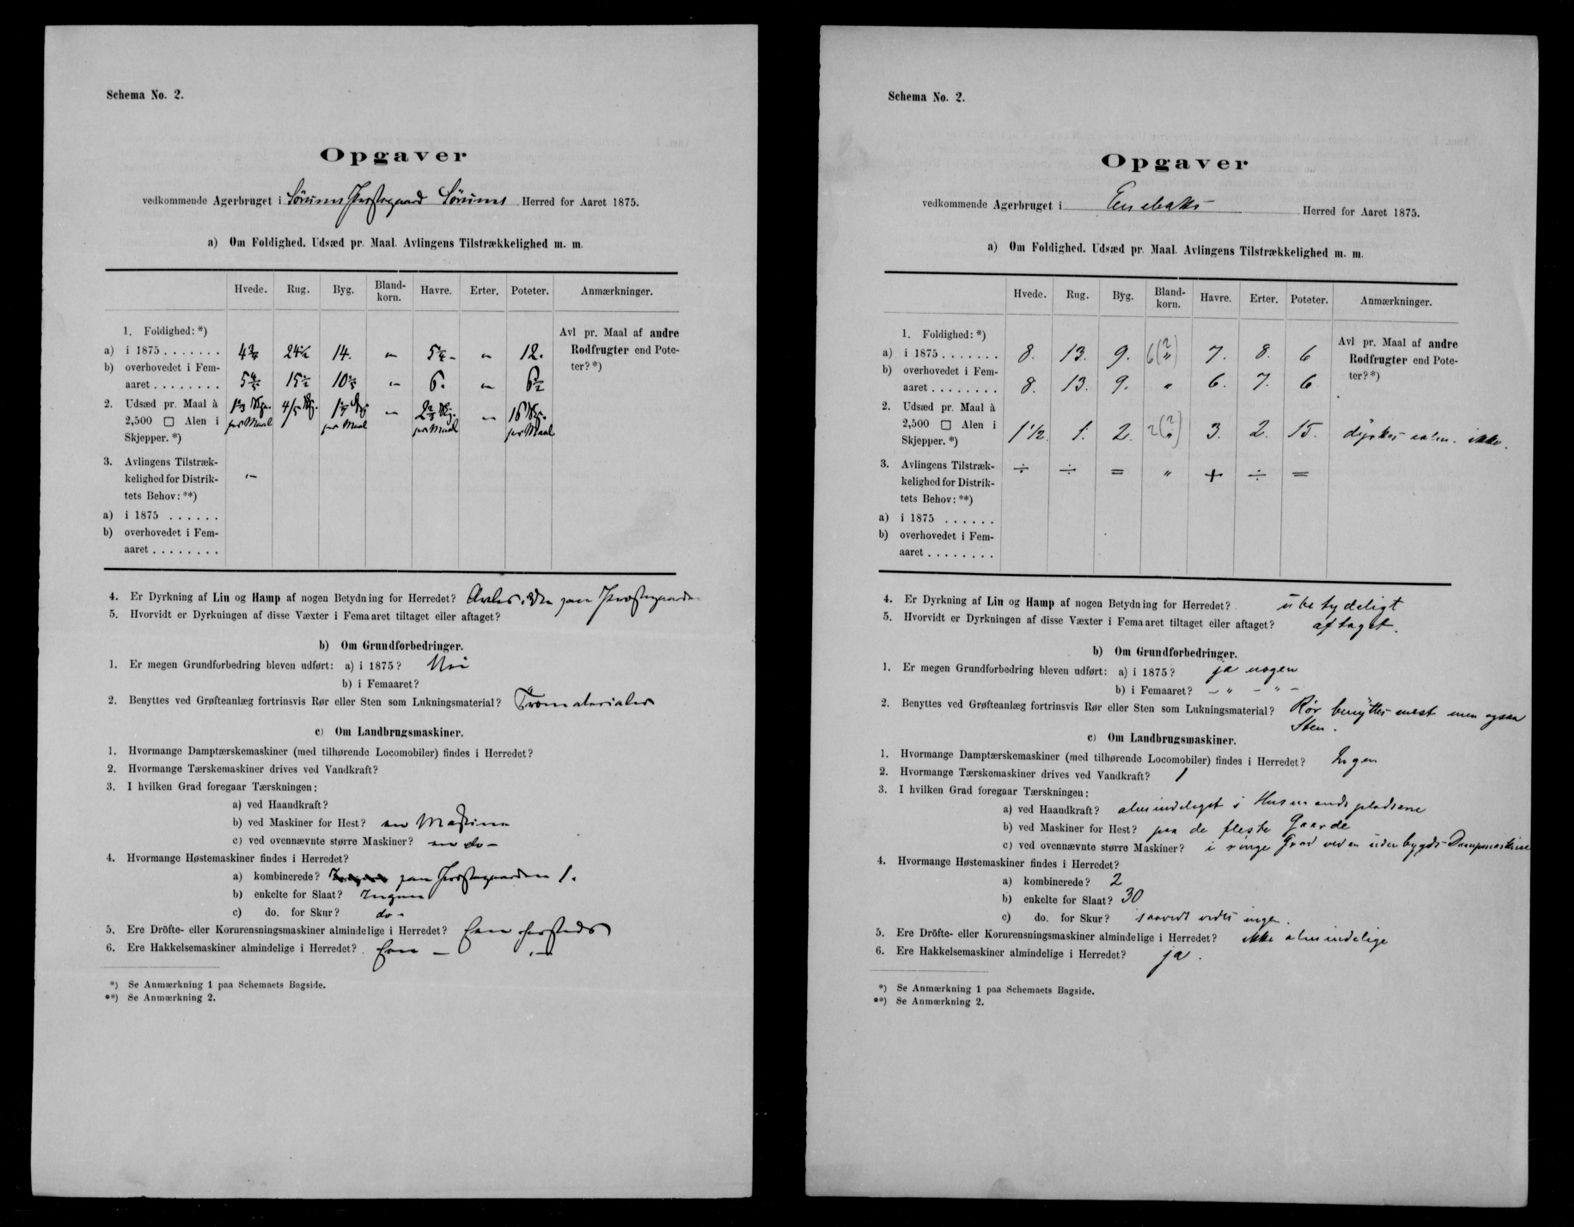 Schema No. 2.
Opgaver
vedkommende Agerbruget i Sörums Præstegaard Sörums Herred for Aaret 1875.
a) Om Foldighed. Udsæd pr. Maal. Avlingens Tilstrækkelighed m. m.
Hvede. Rug. Byg. Bland-korn. Havre. Erter. Poteter. Anmærkninger.
1. Foldighed: *)
a) i 1875 . . . . . . . 14. " " 12.
b) overhovedet i Fem-
aaret . . . . . . . . " 6. "
Avl pr. Maal af andre
Rodfrugter end Pote-
ter? *)
2. Udsæd pr. Maal à
2,500 □ Alen i
Skjepper. *)
pr Maal pr Maal pr Maal pr Maal
3. Avlingens Tilstræk-
kelighed for Distrik-
tets Behov: **)
a) i 1875 . . . . . .
b) overhovedet i Fem-
aaret . . . . . . . .
4. Er Dyrkning af Lin og Hamp af nogen Betydning for Herredet? Avles ikke paa Præstegaarden
5. Hvorvidt er Dyrkningen af disse Væxter i Femaaret tiltaget eller aftaget?
b) Om Grundforbedringer.
1. Er megen Grundforbedring bleven udført: a) i 1875? Nei
b) i Femaaret?
2. Benyttes ved Grøfteanlæg fortrinsvis Rør eller Sten som Lukningsmaterial? Træmaterialer
c) Om Landbrugsmaskiner.
1. Hvormange Damptærskemaskiner (med tilhørende Locomobiler) findes i Herredet?
2. Hvormange Tærskemaskiner drives ved Vandkraft?
3. I hvilken Grad foregaar Tærskningen:
a) ved Haandkraft?
b) ved Maskiner for Hest? en Maskine
c) ved ovennævnte større Maskiner? en do -
4. Hvormange Høstemaskiner findes i Herredet?
a) kombinerede? Ingen paa Præstegaarden 1.
b) enkelte for Slaat? Ingen
c) do. for Skur? do -
5. Ere Dröfte- eller Kornrensningsmaskiner almindelige i Herredet?
6. Ere Hakkelsemaskiner almindelige i Herredet?
*) Se Anmærkning 1 paa Schemaets Bagside.
**) Se Anmærkning 2.
Schema No. 2.
Opgaver
vedkommende Agerbruget i Enebaks Herred for Aaret 1875.
a) Om Foldighed. Udsæd pr. Maal. Avlingens Tilstrækkelighed m. m.
Hvede. Rug. Byg. Bland-korn. Havre. Erter. Poteter. Anmærkninger.
1. Foldighed: *)
a) i 1875 . . . . . . . 8. 13. 9. 6(?) " 7. 8. 6
b) overhovedet i Fem-
aaret . . . . . . . . 8. 13. 9. " 6. 7. 6
Avl pr. Maal af andre
Rodfrugter end Pote-
ter? *)
2. Udsæd pr. Maal à
2,500 □ Alen i
Skjepper. *) 1 1/2 1. 2. 2(?) " 3. 2. 15. dyrkes alm. ikke.
3. Avlingens Tilstræk-
kelighed for Distrik-
tets Behov: **) ÷ ÷ = " + ÷ =
a) i 1875 . . . . . .
b) overhovedet i Fem-
aaret . . . . . . . .
4. Er Dyrkning af Lin og Hamp af nogen Betydning for Herredet? ubetydeligt
5. Hvorvidt er Dyrkningen af disse Væxter i Femaaret tiltaget eller aftaget? aftaget.
b) Om Grundforbedringer.
1. Er megen Grundforbedring bleven udført: a) i 1875? ja nogen
b) i Femaaret? - " - " -
2. Benyttes ved Grøfteanlæg fortrinsvis Rør eller Sten som Lukningsmaterial? Rör benyttes mest men ogsaa
Sten.
c) Om Landbrugsmaskiner.
1. Hvormange Damptærskemaskiner (med tilhørende Locomobiler) findes i Herredet? Ingen
2. Hvormange Tærskemaskiner drives ved Vandkraft? 1
3. I hvilken Grad foregaar Tærskningen:
a) ved Haandkraft? almindeligst i Husmandspladsene
b) ved Maskiner for Hest? paa de fleste Gaarde
c) ved ovennævnte større Maskiner? i ringe Grad ved en udenbygds Dampmaskine
4. Hvormange Høstemaskiner findes i Herredet?
a) kombinerede? 2
b) enkelte for Slaat? 30
c) do. for Skur? saavidt vides ingen.
5. Ere Dröfte- eller Kornrensningsmaskiner almindelige i Herredet? ikke almindelige
6. Ere Hakkelsemaskiner almindelige i Herredet? ja.
*) Se Anmærkning 1 paa Schemaets Bagside.
**) Se Anmærkning 2.